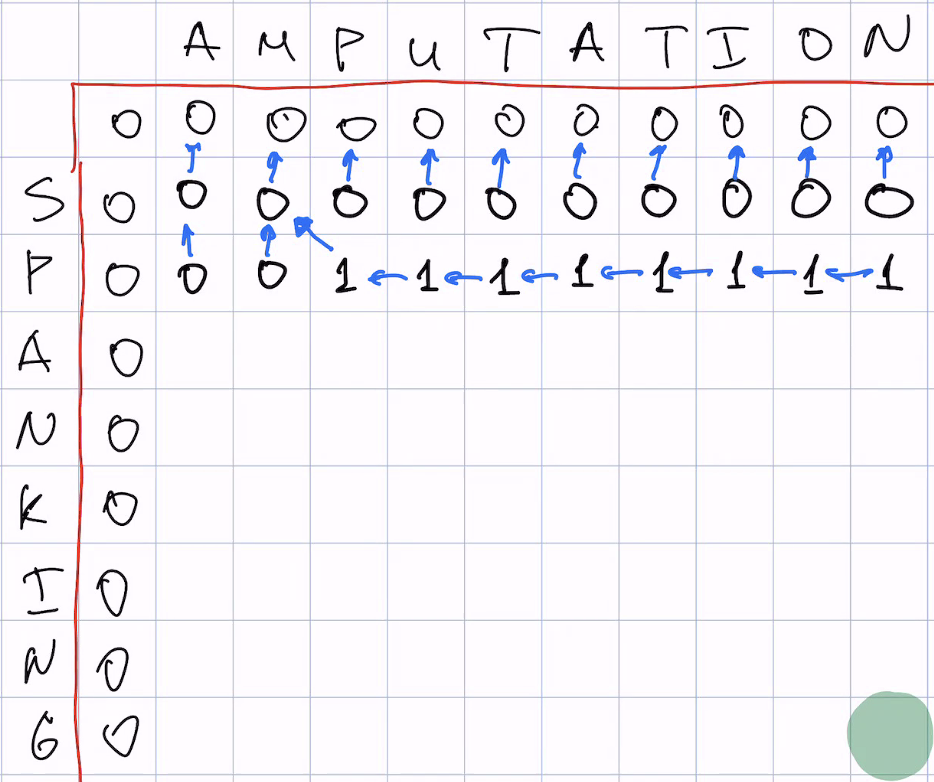 A M P U T A T I O N
0 0 0 0 0 0 0 0 0 0 0
S 0 0 0 0 0 0 0 0 0 0 0
P 0 0 0 1 1 1 1 1 1 1 1
A 0
N 0
K 0
I 0
N 0
G 0